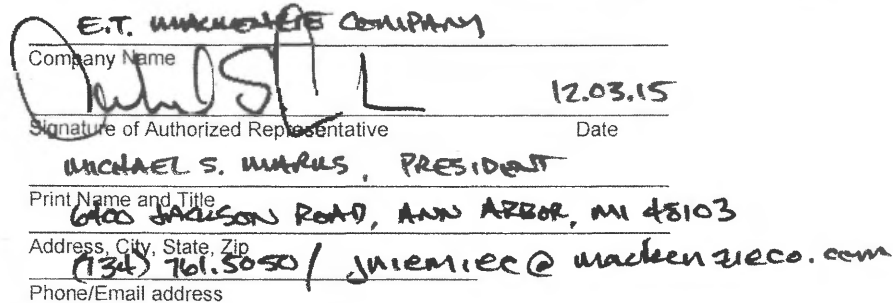 E.T. MACKENZIE COMPANY
Company Name
12.03.15
Signature of Authorized Representative Date
MICHAEL S. MARKS, PRESIDENT
Print Name and Title
6400 JACKSON ROAD, ANN ARBOR, MI 48103
Address, City, State, Zip
(734) 761.5050 / jniemiec@mackenzieco.com
Phone/Email address